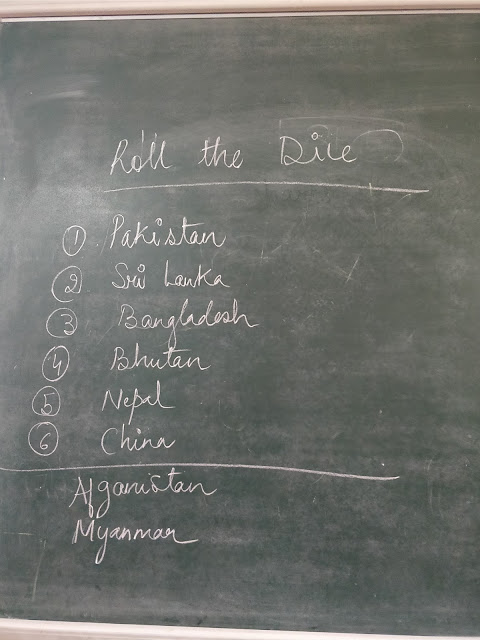 Roll the Dice
1 Pakistan
2 Sri Lanka
3 Bangladesh
4 Bhutan
5 Nepal
6 China
Afganistan
Myanmar